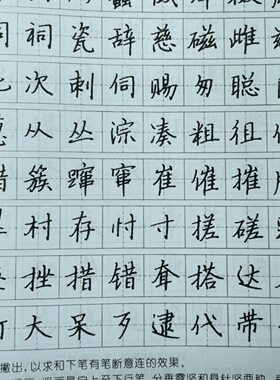 祠 瓷 辞 慈 磁 雌
次 刺 伺 赐 匆 聪
从 丛 淙 凑 粗 徂
簇 蹿 窜 崔 催 摧
村 存 忖 寸 搓 磋
挫 措 错 耷 搭 达
大 呆 歹 逮 代 带
撇出，以求和下笔有笔断意连的效果。